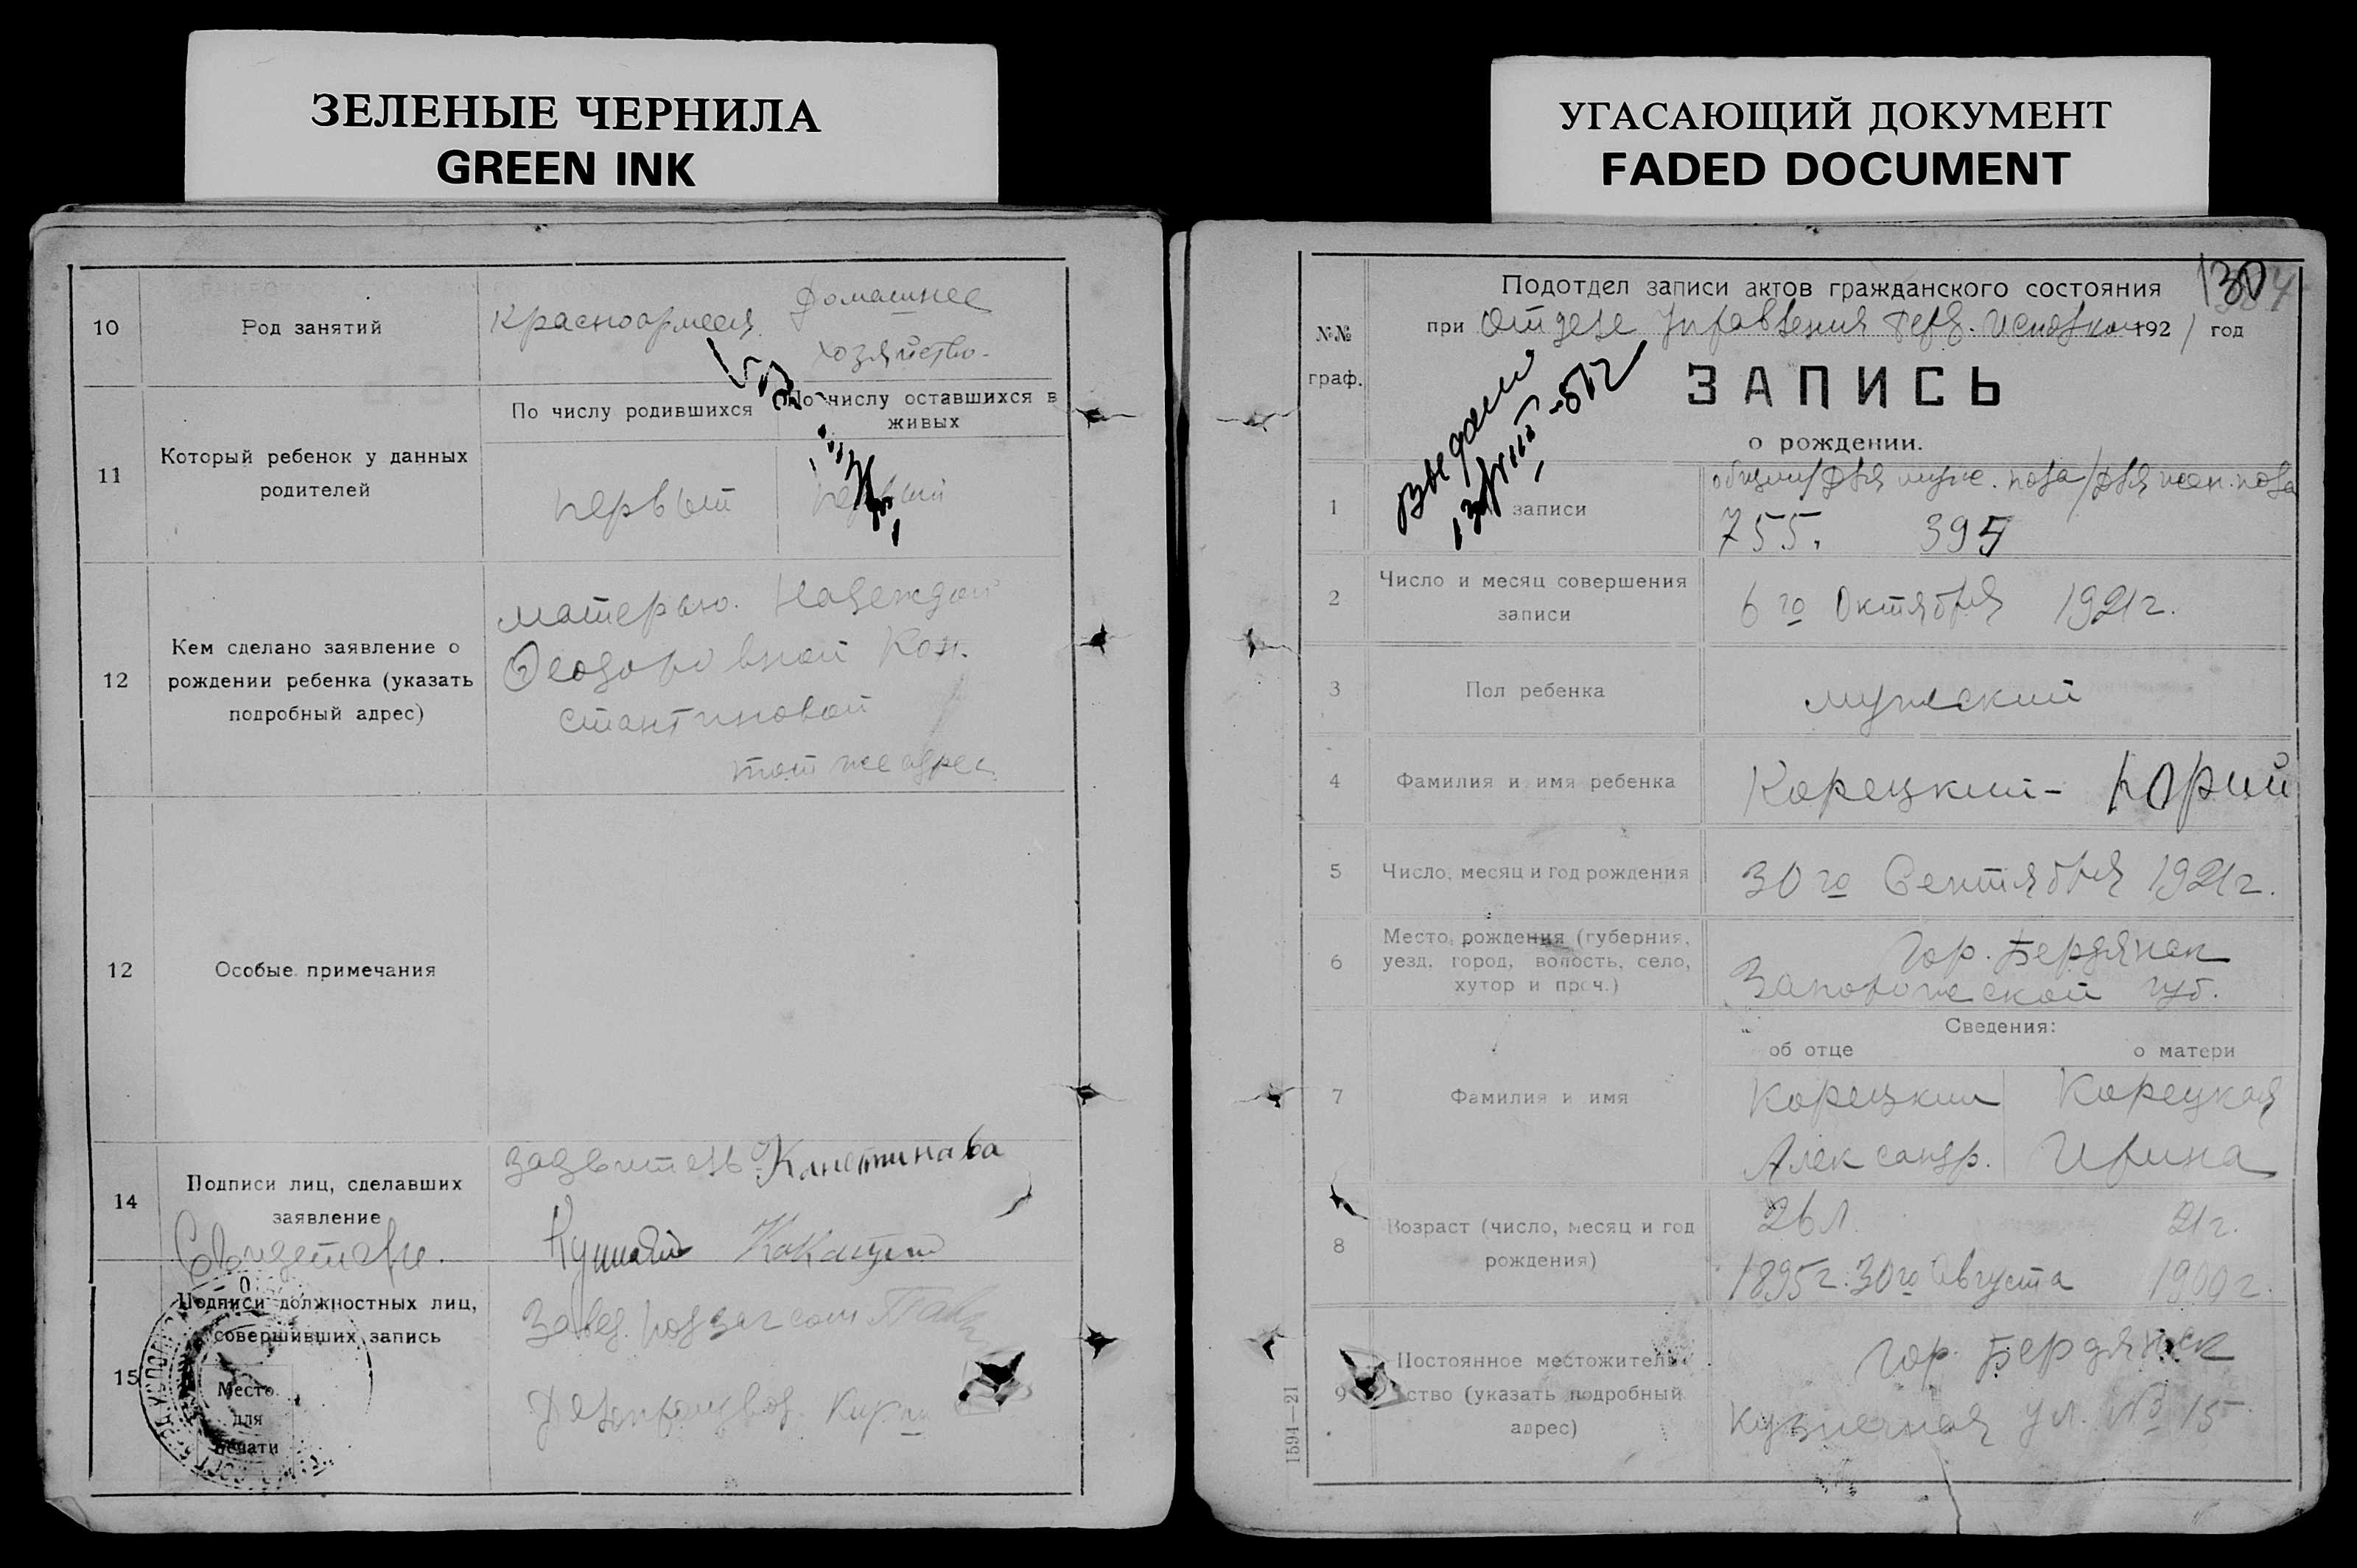 ЗЕЛЕНЫЕ ЧЕРНИЛА
GREEN INK
10
Род занятий
Красноармеец
Домашнее
хозяйство.
11
Который ребенок у данных
родителей
По числу родившихся
По числу оставшихся в
живых
первый
первый
12
Кем сделано заявление о
рождении ребенка (указать
подробный адрес)
матерью. Надеждой
Феодоровной Кон.
стантиновой
тот же адрес.
12
Особые примечания
14
Подписи лиц, сделавших
заявление
заявитель Констинова
Свидетели.
15
Подписи должностных лиц,
совершивших запись
Завед. подзагсом
Делопроизвод.
Место
для
печати
УГАСАЮЩИЙ ДОКУМЕНТ
FADED DOCUMENT
Подотдел записи актов гражданского состояния
при Отделе Управления Исполкома 1921 год
№№
граф.
ЗАПИСЬ
о рождении.
1
записи
общий/для муж. пола/для жен. пола
755. 395
2
Число и месяц совершения
записи
6 го Октября 1921г.
3
Пол ребенка
мужский
4
Фамилия и имя ребенка
Корецкий - Юрий
5
Число, месяц и год рождения
30 го Сентября 1921г.
6
Место рождения (губерния,
уезд, город, волость, село,
хутор и проч.)
Гор. Бердянск
Запорожской губ.
Сведения:
об отце
о матери
7
Фамилия и имя
Корецкий
Александр.
Корецкая
Ирина
8
Возраст (число, месяц и год
рождения)
26 л.
21 г.
1895г. 30го Августа
1900г.
9
Постоянное местожитель-
ство (указать подробный
адрес)
Гор. Бердянск
Кузнечная ул. № 15
1591—21